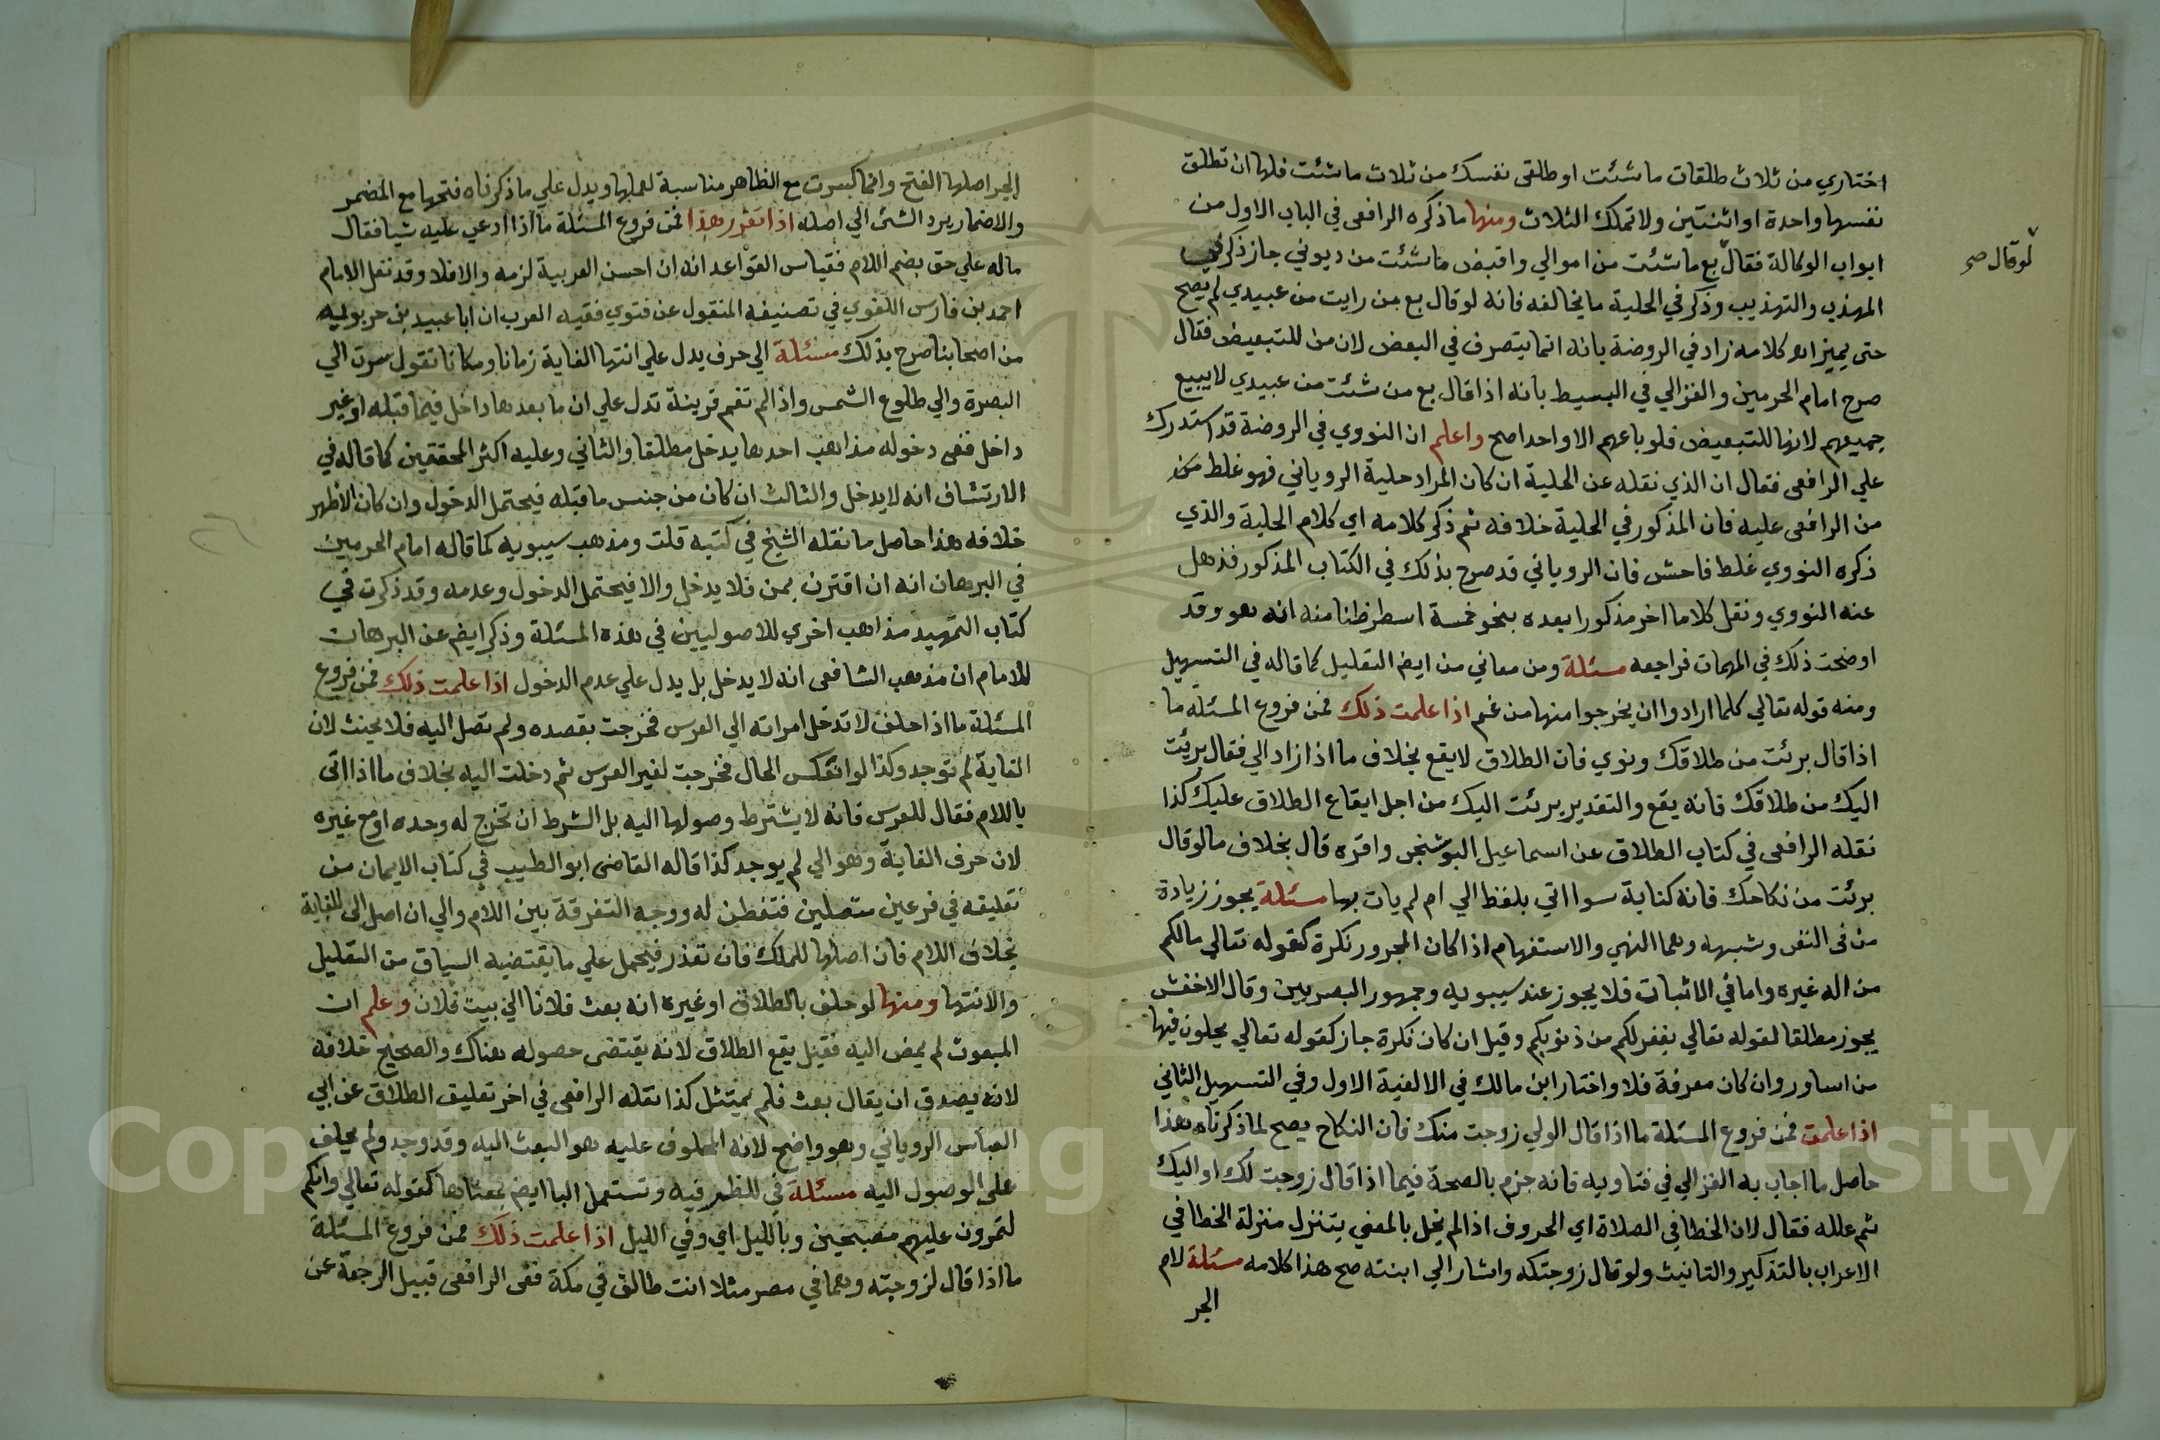 اختاري من ثلاث طلقات ما شئت او طلقى نفسك من ثلاث ما شئت فلها ان تطلق
نفسها واحدة او اثنتين ولا تملك الثلاث ومنها ما ذكره الرافعى في الباب الاول من
ابواب الوكالة فقال بع ما شئت من اموالي واقبض ما شئت من ديوني جاز ذكره في
لو قال صح
المهذب والتهذيب وذكر في الحلية ما يخالفه فانه لو قال بع من رايت من عبيدي لم يصح
حتى يميز اه كلامه زاد في الروضة بانه انما يتصرف في البعض لان من للتبعيض فقال
صرح امام الحرمين والغزالي في البسيط بانه اذا قال بع من شئت من عبيدي لا يبيع
جميعهم لانها للتبعيض فلو باعهم الا واحدا صح واعلم ان النووي في الروضة قد استدرك
علي الرافعى فقال ان الذي نقله عن الحلية ان كان المراد حلية الروياني فهو غلط
من الرافعى عليه فان المذكور في الحلية خلافه ثم ذكر كلامه اي كلام الحلية والذي
ذكره النووي غلط فاحش فان الروياني قد صرح بذلك في الكتاب المذكور فذهل
عنه النووي ونقل كلاما اخر مذكورا بعده بنحو خمسة اسطر ظنا منه انه هو وقد
اوضحت ذلك في المهمات فراجعه مسئلة ومن معاني من ايض التعليل كما قاله في التسهيل
ومنه قوله تعالي كلما ارادوا ان يخرجوا منها من غم اذا علمت ذلك فمن فروع المسئلة ما
اذا قال برئت من طلاقك ونوي فان الطلاق لا يقع بخلاف ما اذا زاد الي فقال برئت
اليك من طلاقك فانه يقع والتقدير برئت اليك من اجل ايقاع الطلاق عليك كذا
نقله الرافعى في كتاب الطلاق عن اسماعيل البوشنجى واقره قال بخلاف ما لو قال
برئت من نكاحك فانه كناية سوا اتي بلفظ الي ام لم يات بها مسئلة يجوز زيادة
من في النفى وشبهه وهما النهي والاستفهام اذا كان المجرور نكرة كقوله تعالي مالكم
من اله غيره واما في الاثبات فلا يجوز عند سيبويه وجمهور البصريين وقال الاخفش
يجوز مطلقا لقوله تعالي يغفر لكم من ذنوبكم وقيل ان كان نكرة جاز كقوله تعالي يحلون فيها
من اساور وان كان معرفة فلا واختار ابن مالك في الالفية الاول وفي التسهيل الثاني
اذا علمت فمن فروع المسئلة ما اذا قال الولي زوجت منك فان النكاح يصح لما ذكرناه هذا
حاصل ما اجاب به الغزالي في فتاويه فانه جزم بالصحة فيما اذا قال زوجت لك او اليك
ثم علله فقال لان الخطا في الصلاة اي الحروف اذا لم يخل بالمعني يتنزل منزلة الخطا في
الاعراب بالتذكير والتانيث ولو قال زوجتكه واشار الي ابنته صح هذا كلامه مسئلة لام
الجر
الجر اصلها الفتح وانما كسرت مع الظاهر مناسبة لعملها ويدل علي ما ذكرناه فتحها مع المضمر
والاضمار يرد الشئ الي اصله اذا تقرر هذا فمن فروع المسئلة ما اذا ادعي عليه شيا فقال
ماله علي حق بضم اللام فقياس القواعد انه ان احسن العربية لزمه والا فلا وقد نقل الامام
احمد بن فارس اللغوي في تصنيفه المنقول عن فتوي فقيه العرب ان ابا عبيد بن حربويه
من اصحابنا صرح بذلك مسئلة الي حرف يدل علي انتها الغاية زمانا ومكانا تقول سرت الي
البصرة والي طلوع الشمس واذا لم تقم قرينة تدل علي ان ما بعدها داخل فيما قبله او غير
داخل ففى دخوله مذاهب احدها يدخل مطلقا والثاني وعليه اكثر المحققين كما قاله في
الارتشاف انه لا يدخل والثالث ان كان من جنس ما قبله فيحتمل الدخول وان كان الاظهر
خلافه هذا حاصل ما نقله الشيخ في كتبه قلت ومذهب سيبويه كما قاله امام الحرمين
في البرهان انه ان اقترن بمن فلا يدخل والا فيحتمل الدخول وعدمه وقد ذكرت في
كتاب التمهيد مذاهب اخري للاصوليين في هذه المسئلة وذكر ايض عن البرهان
للامام ان مذهب الشافعى انه لا يدخل بل يدل علي عدم الدخول اذا علمت ذلك فمن فروع
المسئلة ما اذا حلف لا تدخل امراته الي العرس فخرجت بقصده ولم تصل اليه فلا يحنث لان
الغاية لم توجد وكذا لو انعكس الحال فخرجت لغير العرس ثم دخلت اليه بخلاف ما اذا اتى
باللام فقال للعرس فانه لا يشترط وصولها اليه بل الشرط ان تخرج له وحده او مع غيره
لان حرف الغاية وهو الي لم يوجد كذا قاله القاضى ابو الطيب في كتاب الايمان من
تعليقه في فرعين متصلين فتفطن له ووجه التفرقة بين اللام والي ان اصل الى للغاية
بخلاف اللام فان اصلها للملك فان تعذر فيحمل علي ما يقتضيه السياق من التعليل
والانتها ومنها لو حلف بالطلاق او غيره انه بعث فلانا الي بيت فلان وعلم ان
المبعوث لم يمض اليه فقيل يقع الطلاق لانه يقتضى حصوله هناك والصحيح خلافه
لانه يصدق ان يقال بعث فلم يمتثل كذا نقله الرافعى في اخر تعليق الطلاق عن ابي
العباس الروياني وهو واضح لانه المحلوف عليه هو البعث اليه وقد وجد ولم يحلف
على الوصول اليه مسئلة في للظرفية وتستعمل البا ايض بمعناها كقوله تعالي وانكم
لتمرون عليهم مصبحين وبالليل اي وفي الليل اذا علمت ذلك فمن فروع المسئلة
ما اذا قال لزوجته وهما في مصر مثلا انت طالق في مكة ففى الرافعى قبيل الرجعة عن
Copyright © King Saud University